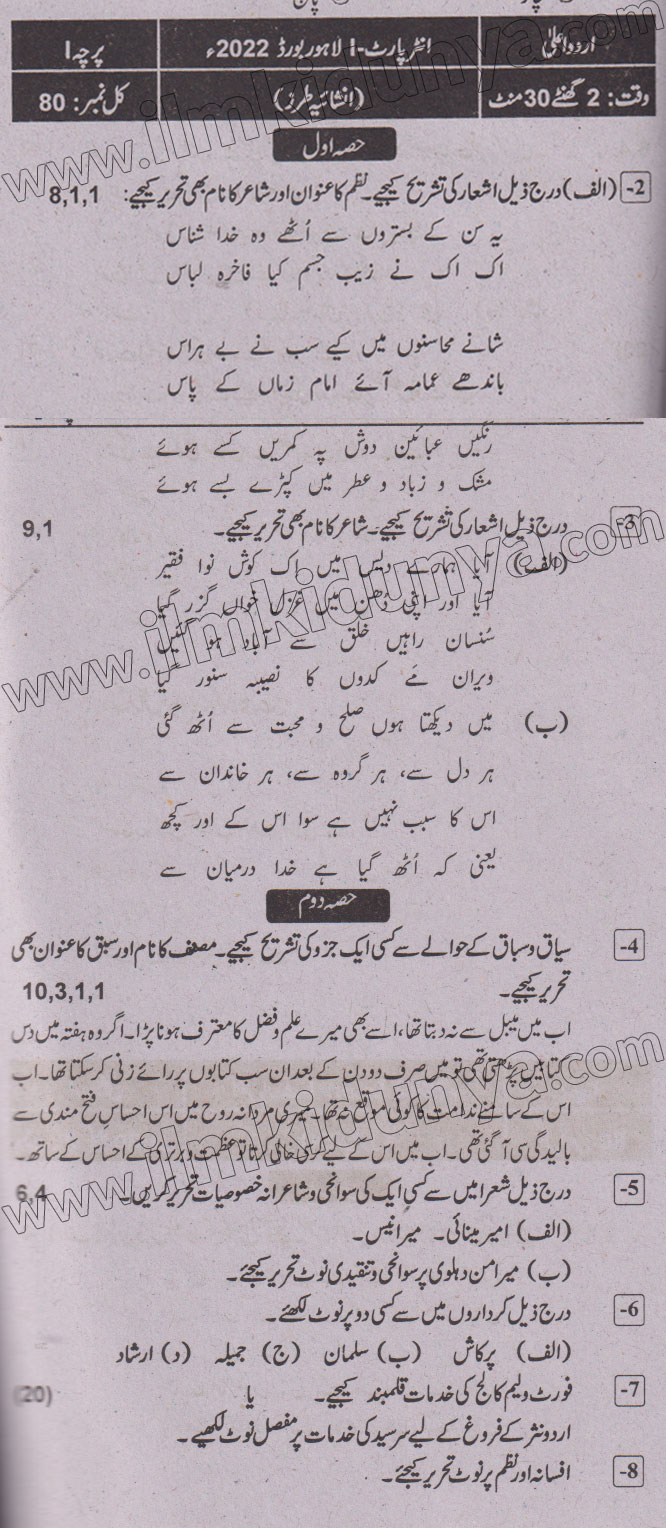 اردو اعلیٰ
انٹر پارٹ-I لاہور بورڈ 2022ء
پرچہ I
وقت: 2 گھنٹے 30 منٹ
(انشائیہ طرز)
کل نمبر: 80
حصہ اول
2- (الف) درج ذیل اشعار کی تشریح کیجیے۔ نظم کا عنوان اور شاعر کا نام بھی تحریر کیجیے: 8,1,1
یہ سن کے بستروں سے اُٹھے وہ خدا شناس
اک اک نے زیب جسم کیا فاخرہ لباس
شانے محاسنوں میں کیے سب نے بے ہراس
باندھے عمامہ آئے امام زماں کے پاس
رنگیں عبائیں دوش پہ کمریں کسے ہوئے
مشک و زباد و عطر میں کپڑے بسے ہوئے
3- درج ذیل اشعار کی تشریح کیجیے۔ شاعر کا نام بھی تحریر کیجیے۔ 9,1
(الف) آیا ہمارے دیس میں اک خوش نوا فقیر
آیا اور اپنی دُھن میں غزل خواں گزر گیا
سُنسان راہیں خلق سے آباد ہو گئیں
ویران مے کدوں کا نصیبہ سنور گیا
(ب) میں دیکھتا ہوں صلح و محبت سے اُٹھ گئی
ہر دل سے، ہر گروہ سے، ہر خاندان سے
اس کا سبب نہیں ہے سوا اس کے اور کچھ
یعنی کہ اُٹھ گیا ہے خدا درمیان سے
حصہ دوم
4- سیاق و سباق کے حوالے سے کسی ایک جزو کی تشریح کیجیے۔ مصنف کا نام اور سبق کا عنوان بھی
تحریر کیجیے۔ 10,3,1,1
اب میں میبل سے نہ دبتا تھا، اسے بھی میرے علم و فضل کا معترف ہونا پڑا۔ اگر وہ ہفتہ میں دس
کتابیں پڑھتی تھی تو میں صرف دو دن کے بعد ان سب کتابوں پر رائے زنی کر سکتا تھا۔ اب
اس کے سامنے ندامت کا کوئی موقع نہ تھا۔ میری مردانہ روح میں اس احساس فتح مندی سے
بالیدگی سی آ گئی تھی۔ اب میں اس کے لیے کرسی خالی کرتا تو عظمت و برتری کے احساس کے ساتھ۔
5- درج ذیل شعرا میں سے کسی ایک کی سوانحی و شاعرانہ خصوصیات تحریر کریں۔ 6,4
(الف) امیر مینائی۔ میر انیس۔
(ب) میر امن دہلوی پر سوانحی و تنقیدی نوٹ تحریر کیجئے۔
6- درج ذیل کرداروں میں سے کسی دو پر نوٹ لکھئے۔
(الف) پرکاش (ب) سلمان (ج) جمیلہ (د) ارشاد
7- فورٹ ولیم کالج کی خدمات قلمبند کیجیے۔ یا (20)
اردو نثر کے فروغ کے لیے سرسید کی خدمات پر مفصل نوٹ لکھیے۔
8- افسانہ اور نظم پر نوٹ تحریر کیجئے۔
www.ilmkidunya.com
www.ilmkidunya.com
www.ilmkidunya.com